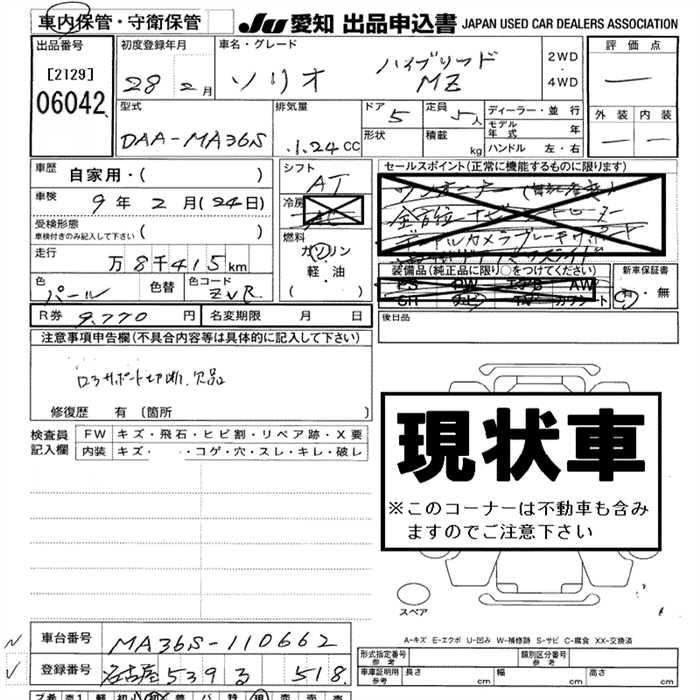 車内保管・守衛保管
JU 愛知 出品申込書 JAPAN USED CAR DEALERS ASSOCIATION
出品番号
[2129]
06042
初度登録年月
28 2月
車名・グレード
ソリオ ハイブリッド MZ
2WD
・
4WD
評価点
一
外装 内装
一 一
型式
DAA-MA36S
排気量
1.24 CC
ドア 5
形状
定員 5人
積載 kg
ディーラー・並行
モデル年式 年
ハンドル 左・右
車歴
自家用・( )
車検
9年 2月(24日)
受検形態
車検付きのみ記入して下さい ( )
走行
万8千415km
色
パール
色替
色コード
ZVR
シフト
AT
冷房
AC
燃料
ガソリン
軽・油
( )
セールスポイント(正常に機能するものに限ります)
全方位
装備品(純正品に限り○をつけてください)
PS PW AW
SR ナビ TV カワシート
新車保証書
有・無
R券 9,770円
名変期限 月 日
後日品
注意事項申告欄(不具合内容等は具体的に記入して下さい)
ロアサポート切断、欠品
修復歴 有(箇所 )
検査員
記入欄
FW キズ・飛石・ヒビ割・リペア跡・X要
内装 キズ・ ・コゲ・穴・スレ・キレ・破レ
現状車
※このコーナーは不動車も含み
ますのでご注意下さい
スペア
A-キズ E-エクボ U-凹み W-補修跡 S-サビ C-腐食 XX-交換済
車台番号 MA36S-110662
登録番号 名古屋 539 る 518
型式指定番号
参考
類別区分番号
参考
車庫証明用
参考
長さ cm 幅 cm 高さ cm